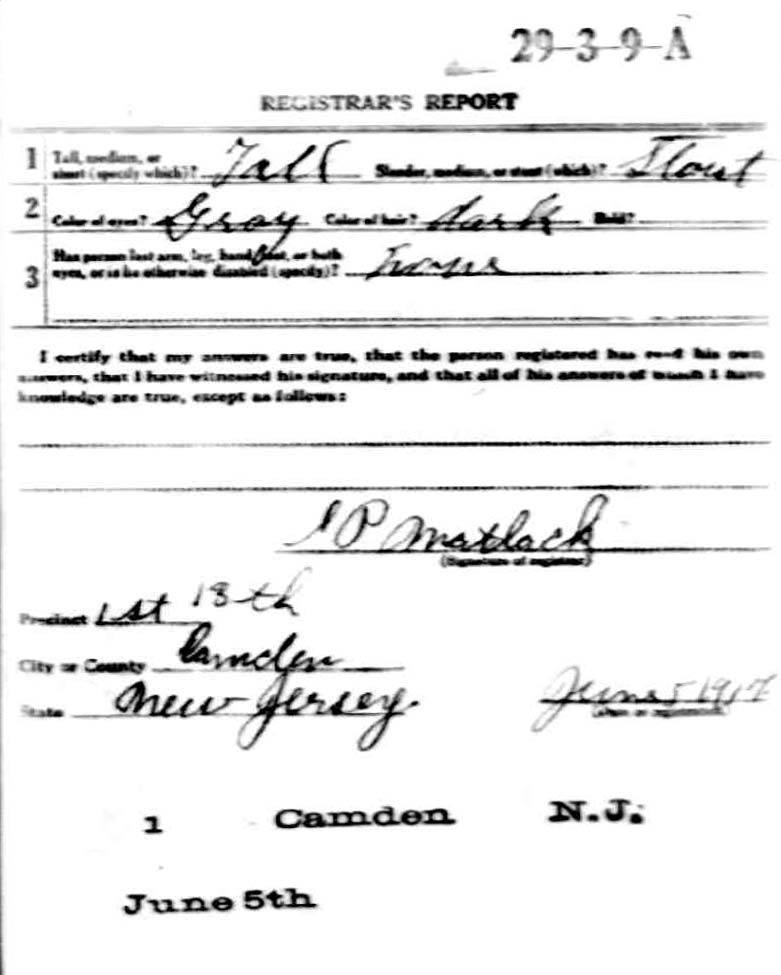 29-3-9-A
REGISTRAR'S REPORT
1 Tall, medium, or short (specify which)? Tall Slender, medium, or stout (which)? Stout
2 Color of eyes? Gray Color of hair? dark Bald?
3 Has person lost arm, leg, hand, foot, or both eyes, or is he otherwise disabled (specify)? none
I certify that my answers are true, that the person registered has read his own
answers, that I have witnessed his signature, and that all of his answers of which I have
knowledge are true, except as follows:
P Matlack
(Signature of registrar)
Precinct 1st 13th
City or County Camden
State New Jersey. June 5 1917
(Date of registration)
1 Camden N.J.
June 5th